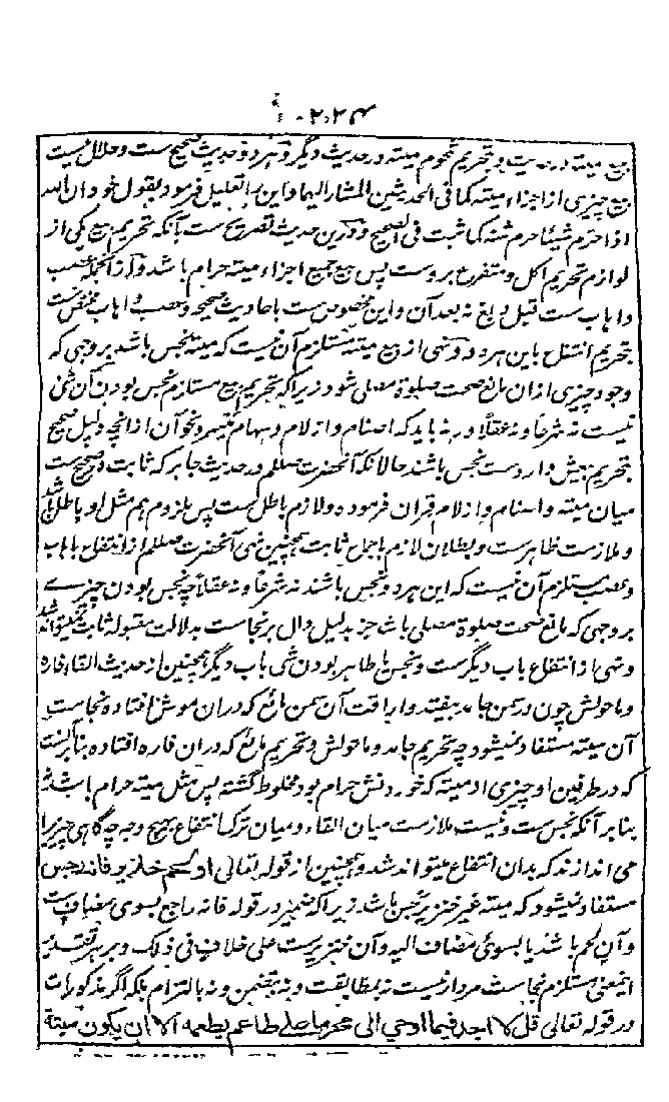 بیع میته در حدیث و تحریم میته در حدیث دیگر و هر دو حدیث صحیح ست و حلال نیست
بیع چیزی از اجزاء میته کما فی الحدیثین المشار الیهما و این را تعلیل فرمود بقول خود ان الله
اذا حرم شیئا حرم ثمنه کما ثبت فی الصحیح و درین حدیث تصریح ست بآنکه تحریم بیع یکی از
لوازم تحریم اکل و متفرع بروست پس بیع جمیع اجزاء میته حرام باشد و از آنجمله عصب
و اهاب ست قبل دبغ نه بعد آن و این مخصوص ست باحادیث صحیحه و عصب و اهاب مختص ست
بتحریم انتفاع باین هر دو و نهی از بیع میته مستلزم آن نیست که میته نجس باشد بر وجهی که
وجود چیزی ازان مانع صحت صلوة مصلی شود زیرا که تحریم بیع مستلزم نجس بودن آن شی
نیست نه شرعا و نه عقلا ورنه باید که اصنام و ازلام و سهام میسر و نحو آن از انچه دلیل صحیح
بتحریم بیعش وارد ست نجس باشند حالانکه آنحضرت صلعم در حدیث جابر که ثابت در صحیح ست
میان میته و اصنام و ازلام قران فرموده و لازم باطل ست پس ملزوم هم مثل او باطل باشد
و ملازمت ظاهرست و بطلان لازم باجماع ثابت همچنین نهی آنحضرت صلعم از انتفاع باهاب
و عصب مستلزم آن نیست که این هر دو نجس باشند نه شرعا و نه عقلا چه نجس بودن چیزے
بر وجهی که مانع صحت صلوة مصلی باشد جز بدلیل دال بر نجاست بدلالت مقبوله ثابت نمیتواند شد
و نهی از انتفاع باب دیگرست و نجس یا طاهر بودن شی باب دیگر همچنین از حدیث القاء فاره
و ماحولش چون در سمن جامد بیفتد و اراقت آن سمن مائع که دران موش افتاده نجاست
آن میته مستفاد نمیشود چه تحریم جامد و ماحولش و تحریم مائع که دران فاره افتاده بنابرآنست
که در طرفین او چیزی از میته که خوردنش حرام بود مخلوط گشته پس مثل میته حرام باشد نه
بنابر آنکه نجس ست و نیست ملازمت میان القاء و میان ترک انتفاع بهیچ وجه چه گاهی چیزیرا
می اندازند که بدان انتفاع میتواند شد و همچنین از قوله تعالی او لحم خنزیر فانه رجس
مستفاد نمیشود که میته غیر خنزیر نجس باشد زیرا که ضمیر در قوله فانه راجع بسوی مضاف ست
و آن لحم باشد یا بسوی مضاف الیه و آن خنزیرست علی خلاف فی ذلک و بر هر تقدیر
اینمعنی مستلزم نجاست مردار نیست نه بمطابقت و نه بتضمن و نه بالتزام بلکه اگر مذکورات
در قوله تعالی قل لا اجد فیما اوحی الی محرما علی طاعم یطعمه الا ان یکون میتة